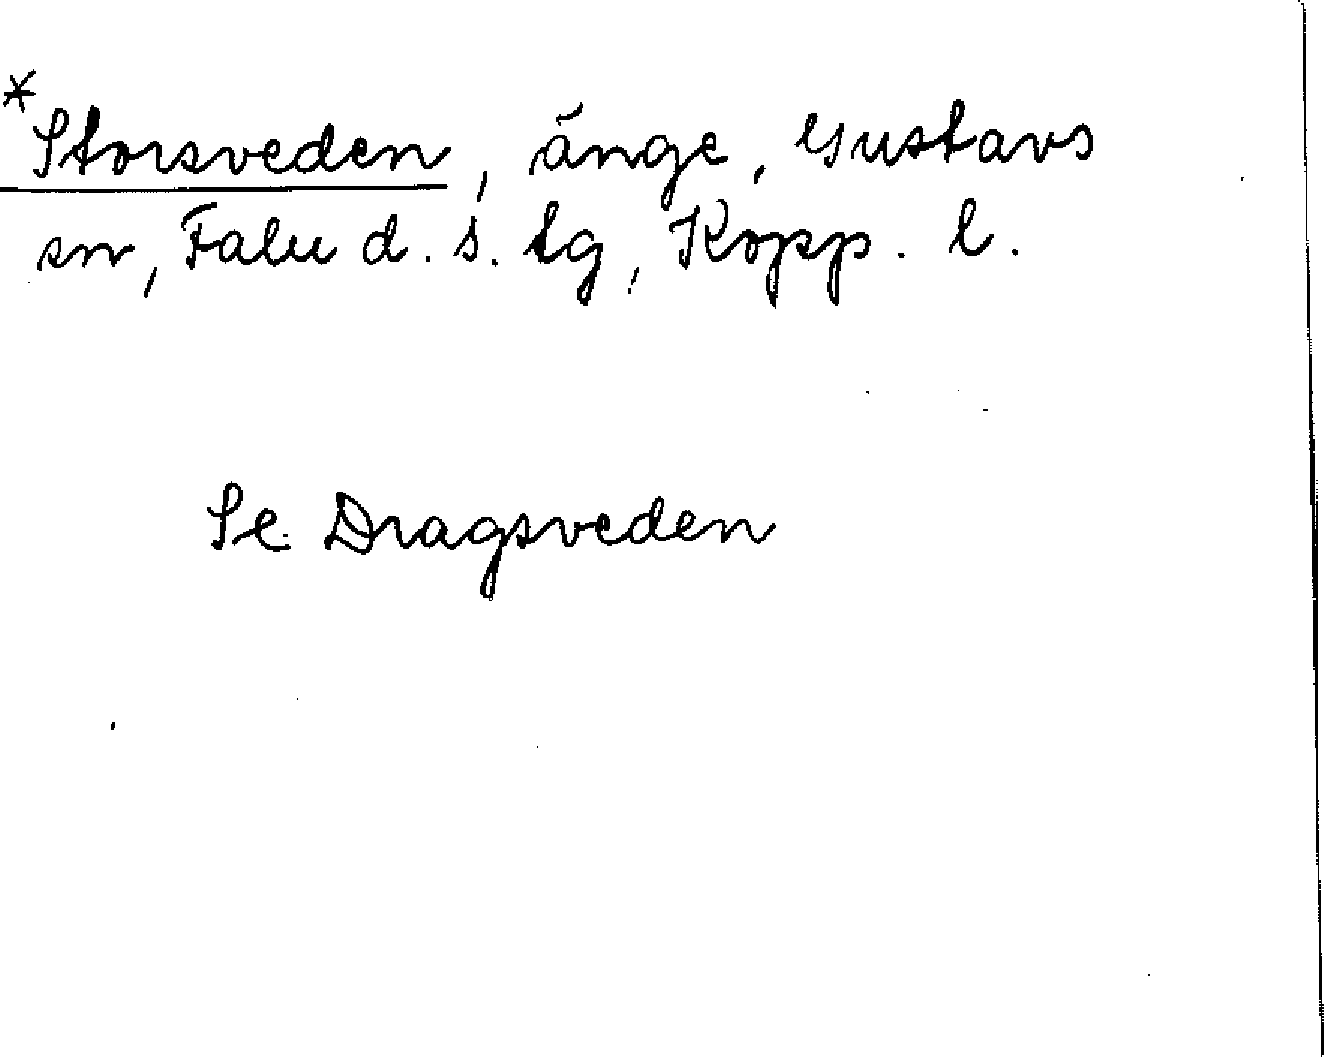 *Storsveden, änge, Gustavs
sn, Falu d. s. tg, Kopp. l.
Se Dragsveden